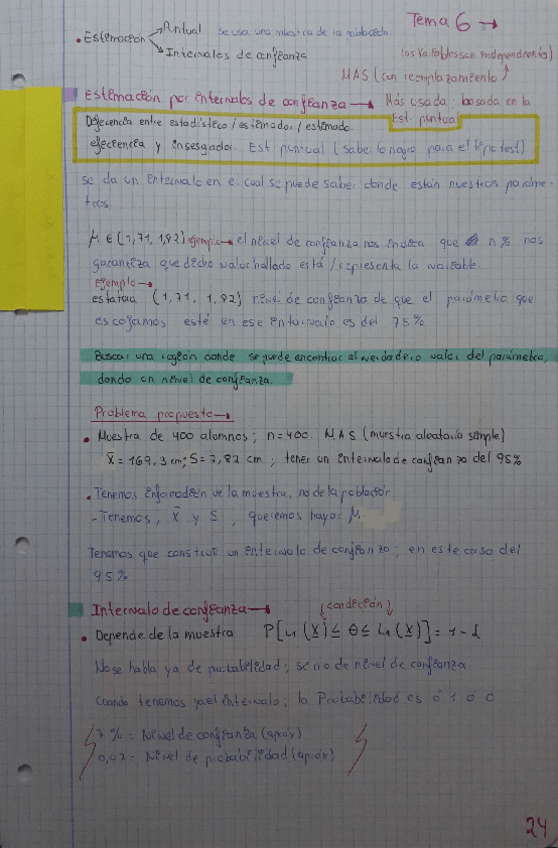 Tema 6 →
• Estimación → Puntual se usa una muestra de la población
→ Intervalos de confianza
(las variables son independientes)
MAS (con reemplazamiento)
Estimación por intervalos de confianza → Más usada: basada en la
Est. puntual
Diferencia entre estadístico / estimador / estimado
eficiencia y insesgador. Est puntual (saberlo para el tipo test)
se da un intervalo en el cual se puede saber donde están nuestros paráme-
tros
μ ∈ (1,71, 1,92) ejemplo → el nivel de confianza nos indica que n % nos
garantiza que dicho valor hallado está / representa la variable.
Ejemplo →
estatura (1,71, 1,92) nivel de confianza de que el parámetro que
escojamos esté en ese intervalo es del 75%
Buscar una región donde se puede encontrar al verdadero valor del parámetro,
dando un nivel de confianza.
Problema propuesto →
• Muestra de 400 alumnos; n=400. MAS (muestra aleatoria simple)
x̄ = 169,3 cm; S = 7,82 cm; tener un intervalo de confianza del 95%
• Tenemos información de la muestra, no de la población
- Tenemos, x̄ y S, queremos hayar μ.
Tenemos que construir un intervalo de confianza; en este caso del
95%
Intervalo de confianza →
(condición)
• Depende de la muestra P[L1(X) ≤ θ ≤ L1(X)] = 1 - α
No se habla ya de probabilidad; sino de nivel de confianza
Cuando tenemos ya el intervalo; la Probabilidad es ó 1 ó 0
7 % = Nivel de confianza (aprox)
0,07 = Nivel de probabilidad (aprox)
24